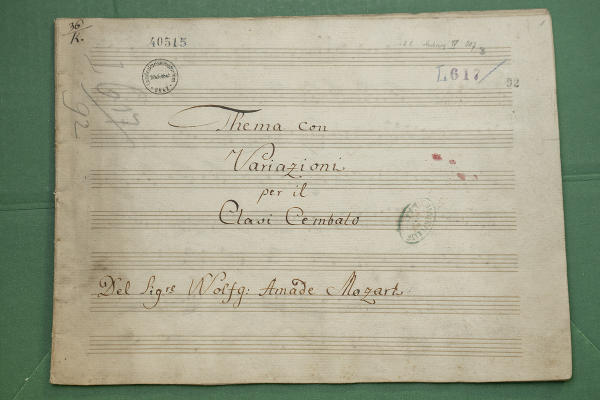 36
K.
40515
L617/
92
L617/92
Thema con
Variazioni
per il
Clavi Cembalo
Del Sigre Wolfg: Amade Mozart